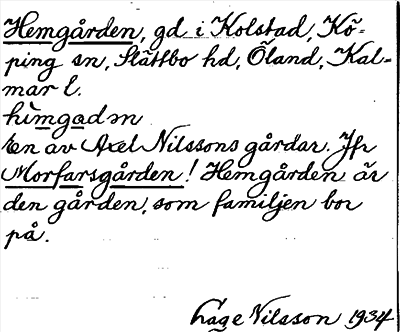 Hemgården, gd i Kolstad, Kö-
ping sn, Slättbo hd, Öland, Kal-
mar l.
En av Axel Nilssons gårdar. Jfr
Morfarsgården! Hemgården är
den gården, som familjen bor
på.
Låge Nilsson 1934